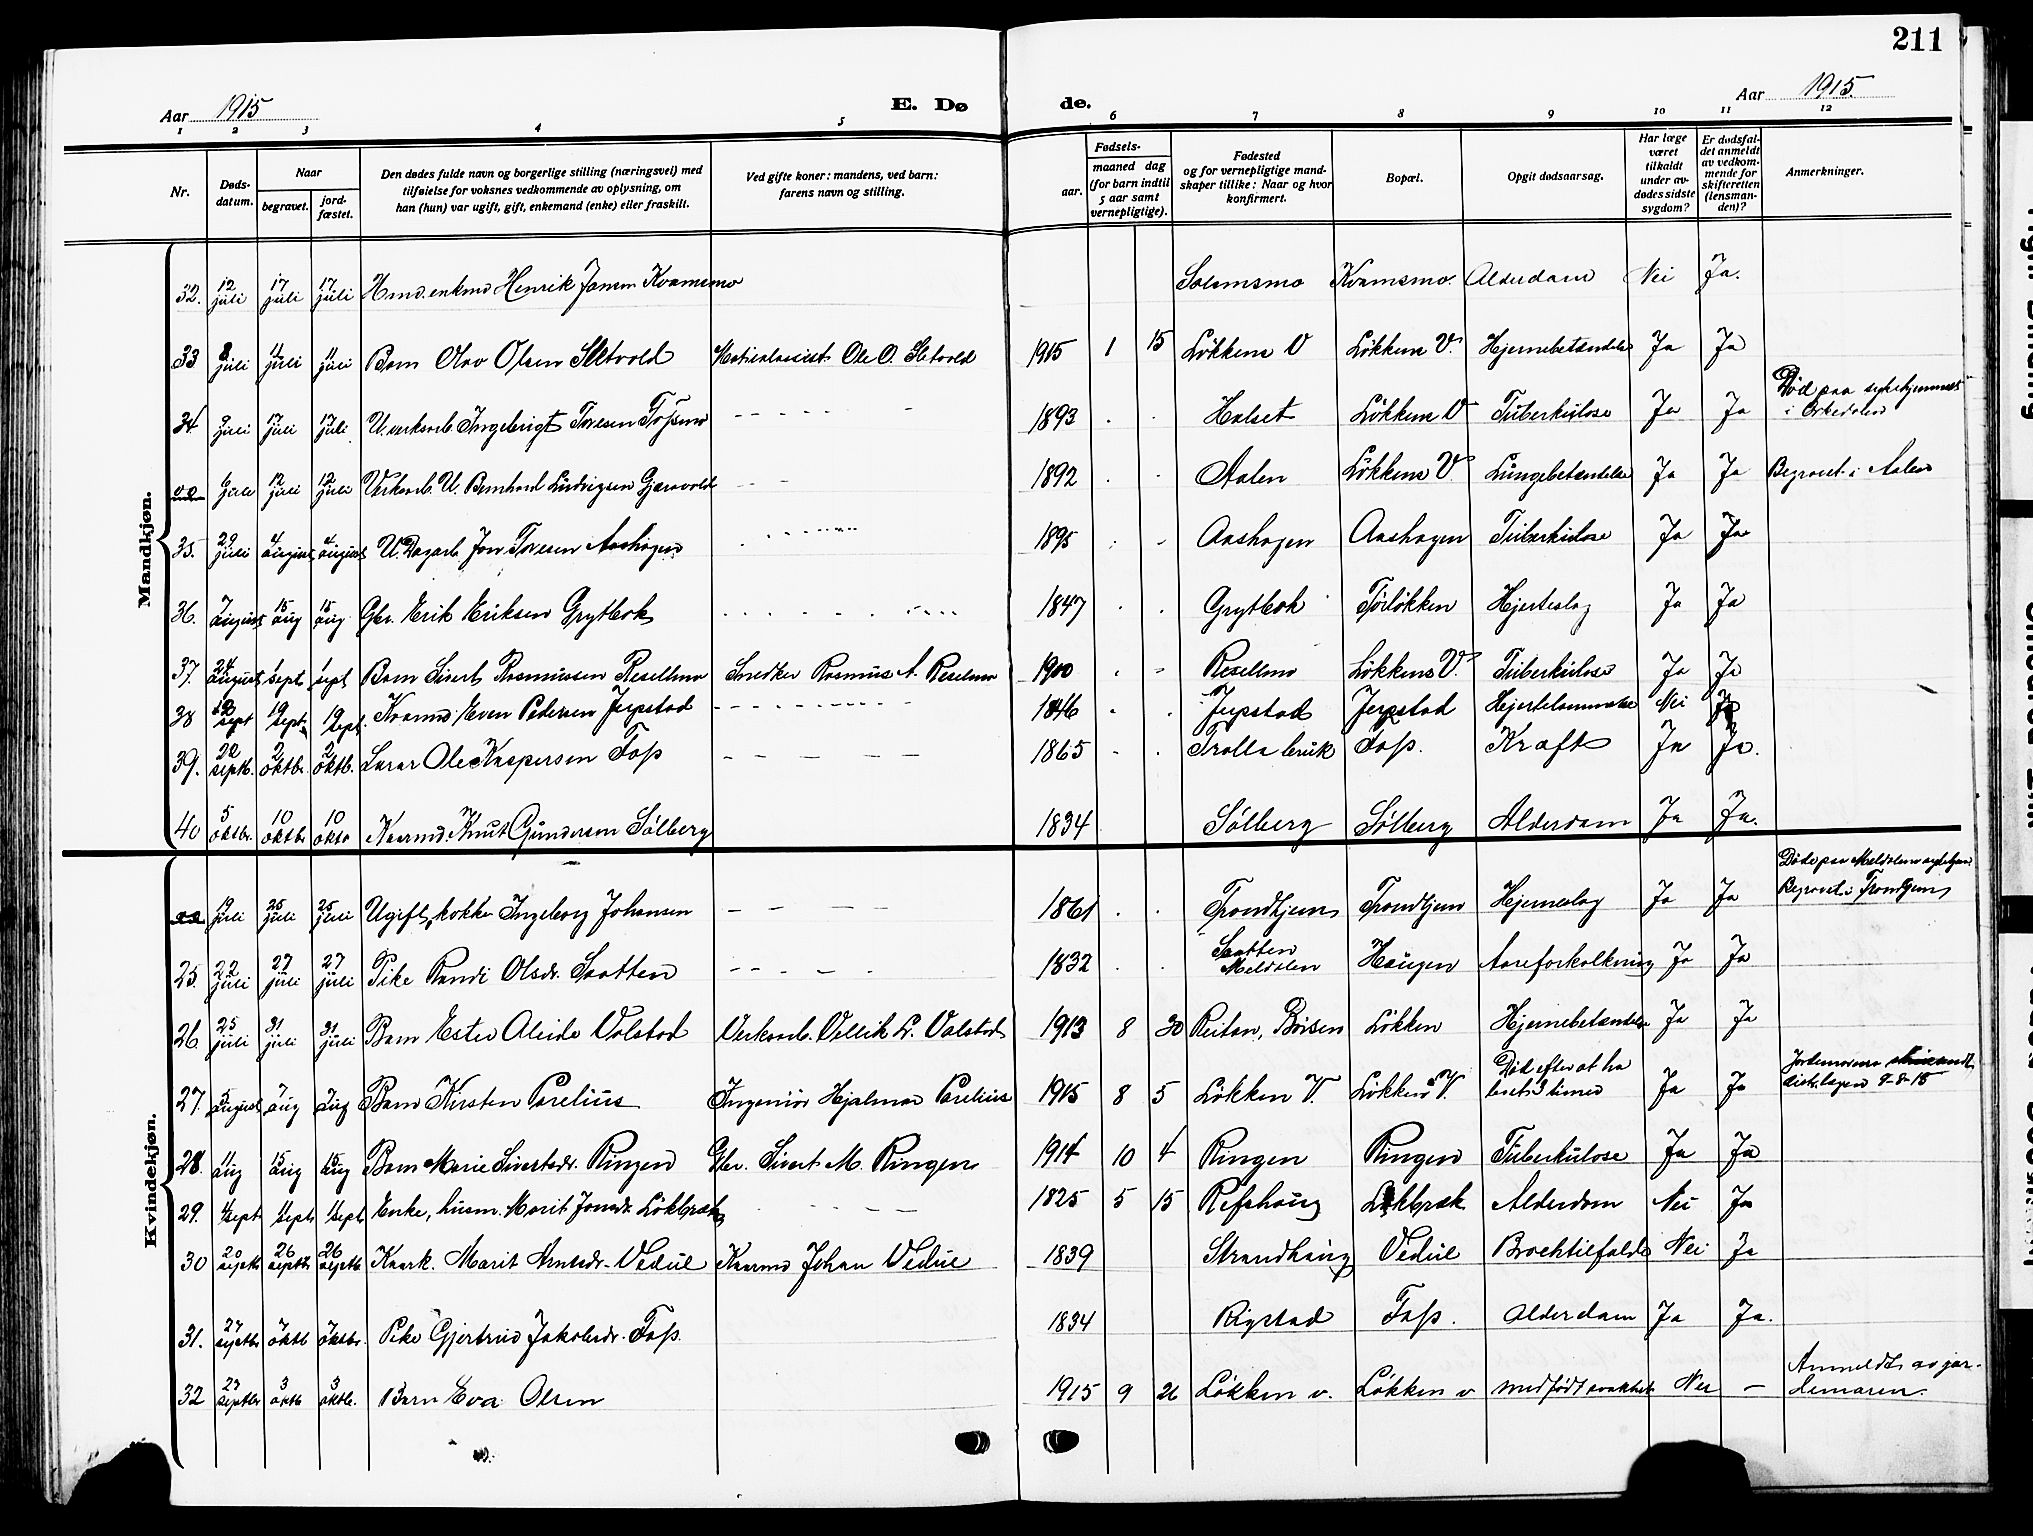 211
Aar 1915 E. Dø de. Aar 1915.
1 2 3 4 5 6 7 8 9 10 11 12
Nr. Døds-datum. Naar begravet. jord-fæstet. Den dødes fulde navn og borgerlige stilling (næringsvei) med tilføielse for voksnes vedkommende av oplysning, om han (hun) var ugift, gift, enkemand (enke) eller fraskilt. Ved gifte koner: mandens, ved barn: farens navn og stilling. Fødsels- aar. maaned dag (for barn indtil 5 aar samt vernepligtige). Fødested og for vernepligtige mandskaper tillike: Naar og hvor konfirmert. Bopæl. Opgit dødsaarsag. Har læge været tilkaldt under avdødes sidste sygdom? Er dødsfaldet anmeldt av vedkommende for skifteretten (lensmanden)? Anmerkninger.
Mandkjøn.
32. 12 juli 17 juli 17 juli Henrik Jonsen Kvamsmo Kvamsmo. Alderdom Nei Ja.
33 juli 11 juli 11 juli Barn Olav Olsen Sletvold Ole O. Sletvold 1915 1 15 Løkkens V Løkkens V. Hjernebetændelse Ja Ja
34 juli 17 juli 17 juli U. verksarb. Ingebrigt Toresen Fossmo 1893 Halset Løkkens V Tuberkulose Ja Ja Død paa sykehjemmet i Orkedalen
juli 12 juli 12 juli Verksarb. U. Bernhard Ludvigsen Gjærvold 1892 Aalen Løkkens V. Lungebetændelse Ja Ja Begravet i Aalen
35. 29 juli 4 august 4 august U. Dagarb. Jon Toresen Aashagen 1895 Aashagen Aashagen Tuberkulose Ja Ja
36. 7 august 15 aug 15 aug Gbr. Erik Eriksen Grytbak 1847 Grytbak Hjerteslag Ja Ja
37. 24 august 1 sept 1 sept Barn Sivert Rasmussen Resellmo Snedker Rasmus A. Reselmo 1900 Resellmo Løkkens V. Tuberkulose Ja Ja
38 12 sept 19 sept. 19 sept. Kaarmd. Even Pedersen Jerpstad 1846 Jerpstad Jerpstad Hjertelammelse Nei Ja
39. 22 septb. 2 oktbr. 2 oktb. Lærer Ole Kaspersen Foss 1865 Trolla bruk Foss. Kræft Ja Ja.
40 5 oktbr. 10 oktbr 10 oktb Kaarmd. Knut Gundersen Sølberg 1834 Sølberg Sølberg Alderdom Ja Ja.
Kvindekjøn.
19 juli 25 juli 25 juli Ugift, kokke Ingeborg Johansen 1861 Trondhjem Trondhjem Hjerneslag Ja Ja Døde paa Meldalens sykehjem. Begravet i Trondhjem
25. 22 juli 27 juli 27 juli Pike Randi Olsdr. Slotten 1832 Slotten Meldalen Haugen Aareforkalkning Ja Ja
26 25 juli 31 juli 31 juli Barn Ester Aleide Volstad Verksarb. Volstad 1913 8 30 Reitan, Børsen Løkken Hjernebetændelse Ja Ja
27. 5 august 7 aug 7 aug Barn Kirsten Parelius Ingeniør Hjalmar Parelius 1915 8 5 Løkken V. Løkkens V. Død efter at ha levet 3 timer Ja Ja Jordemoren distr.lægen 9-8-15
28. 11 aug 15 aug 15 aug Barn Marie Sivertsdr. Ringen Gbr. Sivert M. Ringen 1914 10 4 Ringen Ringen Tuberkulose Ja Ja
29. 4 sept 11 sept 11 sept. Enke, husm. Marit Jonsdr. Løkbræk 1825 5 15 Refshaug Løkbræk Alderdom Nei Ja
30 20 septb 26 septb 26 septb Kaark. Marit Arntsdr. Vedul Kaarmd Johan Vedul 1839 Strandhaug Vedul Broktilfælde Nei Ja
31. 27 septbr 7 oktb 7 oktbr. Pike Gjertrud Jakobsdr. Foss. 1834 Rigstad Foss. Alderdom Ja Ja.
32 27 septbr 3 oktb 3 oktb. Barn Eva Olsen 1915 9 26 Løkken v. Løkken v medfødt svakhet Nei – Anmeldt av jordemoren.